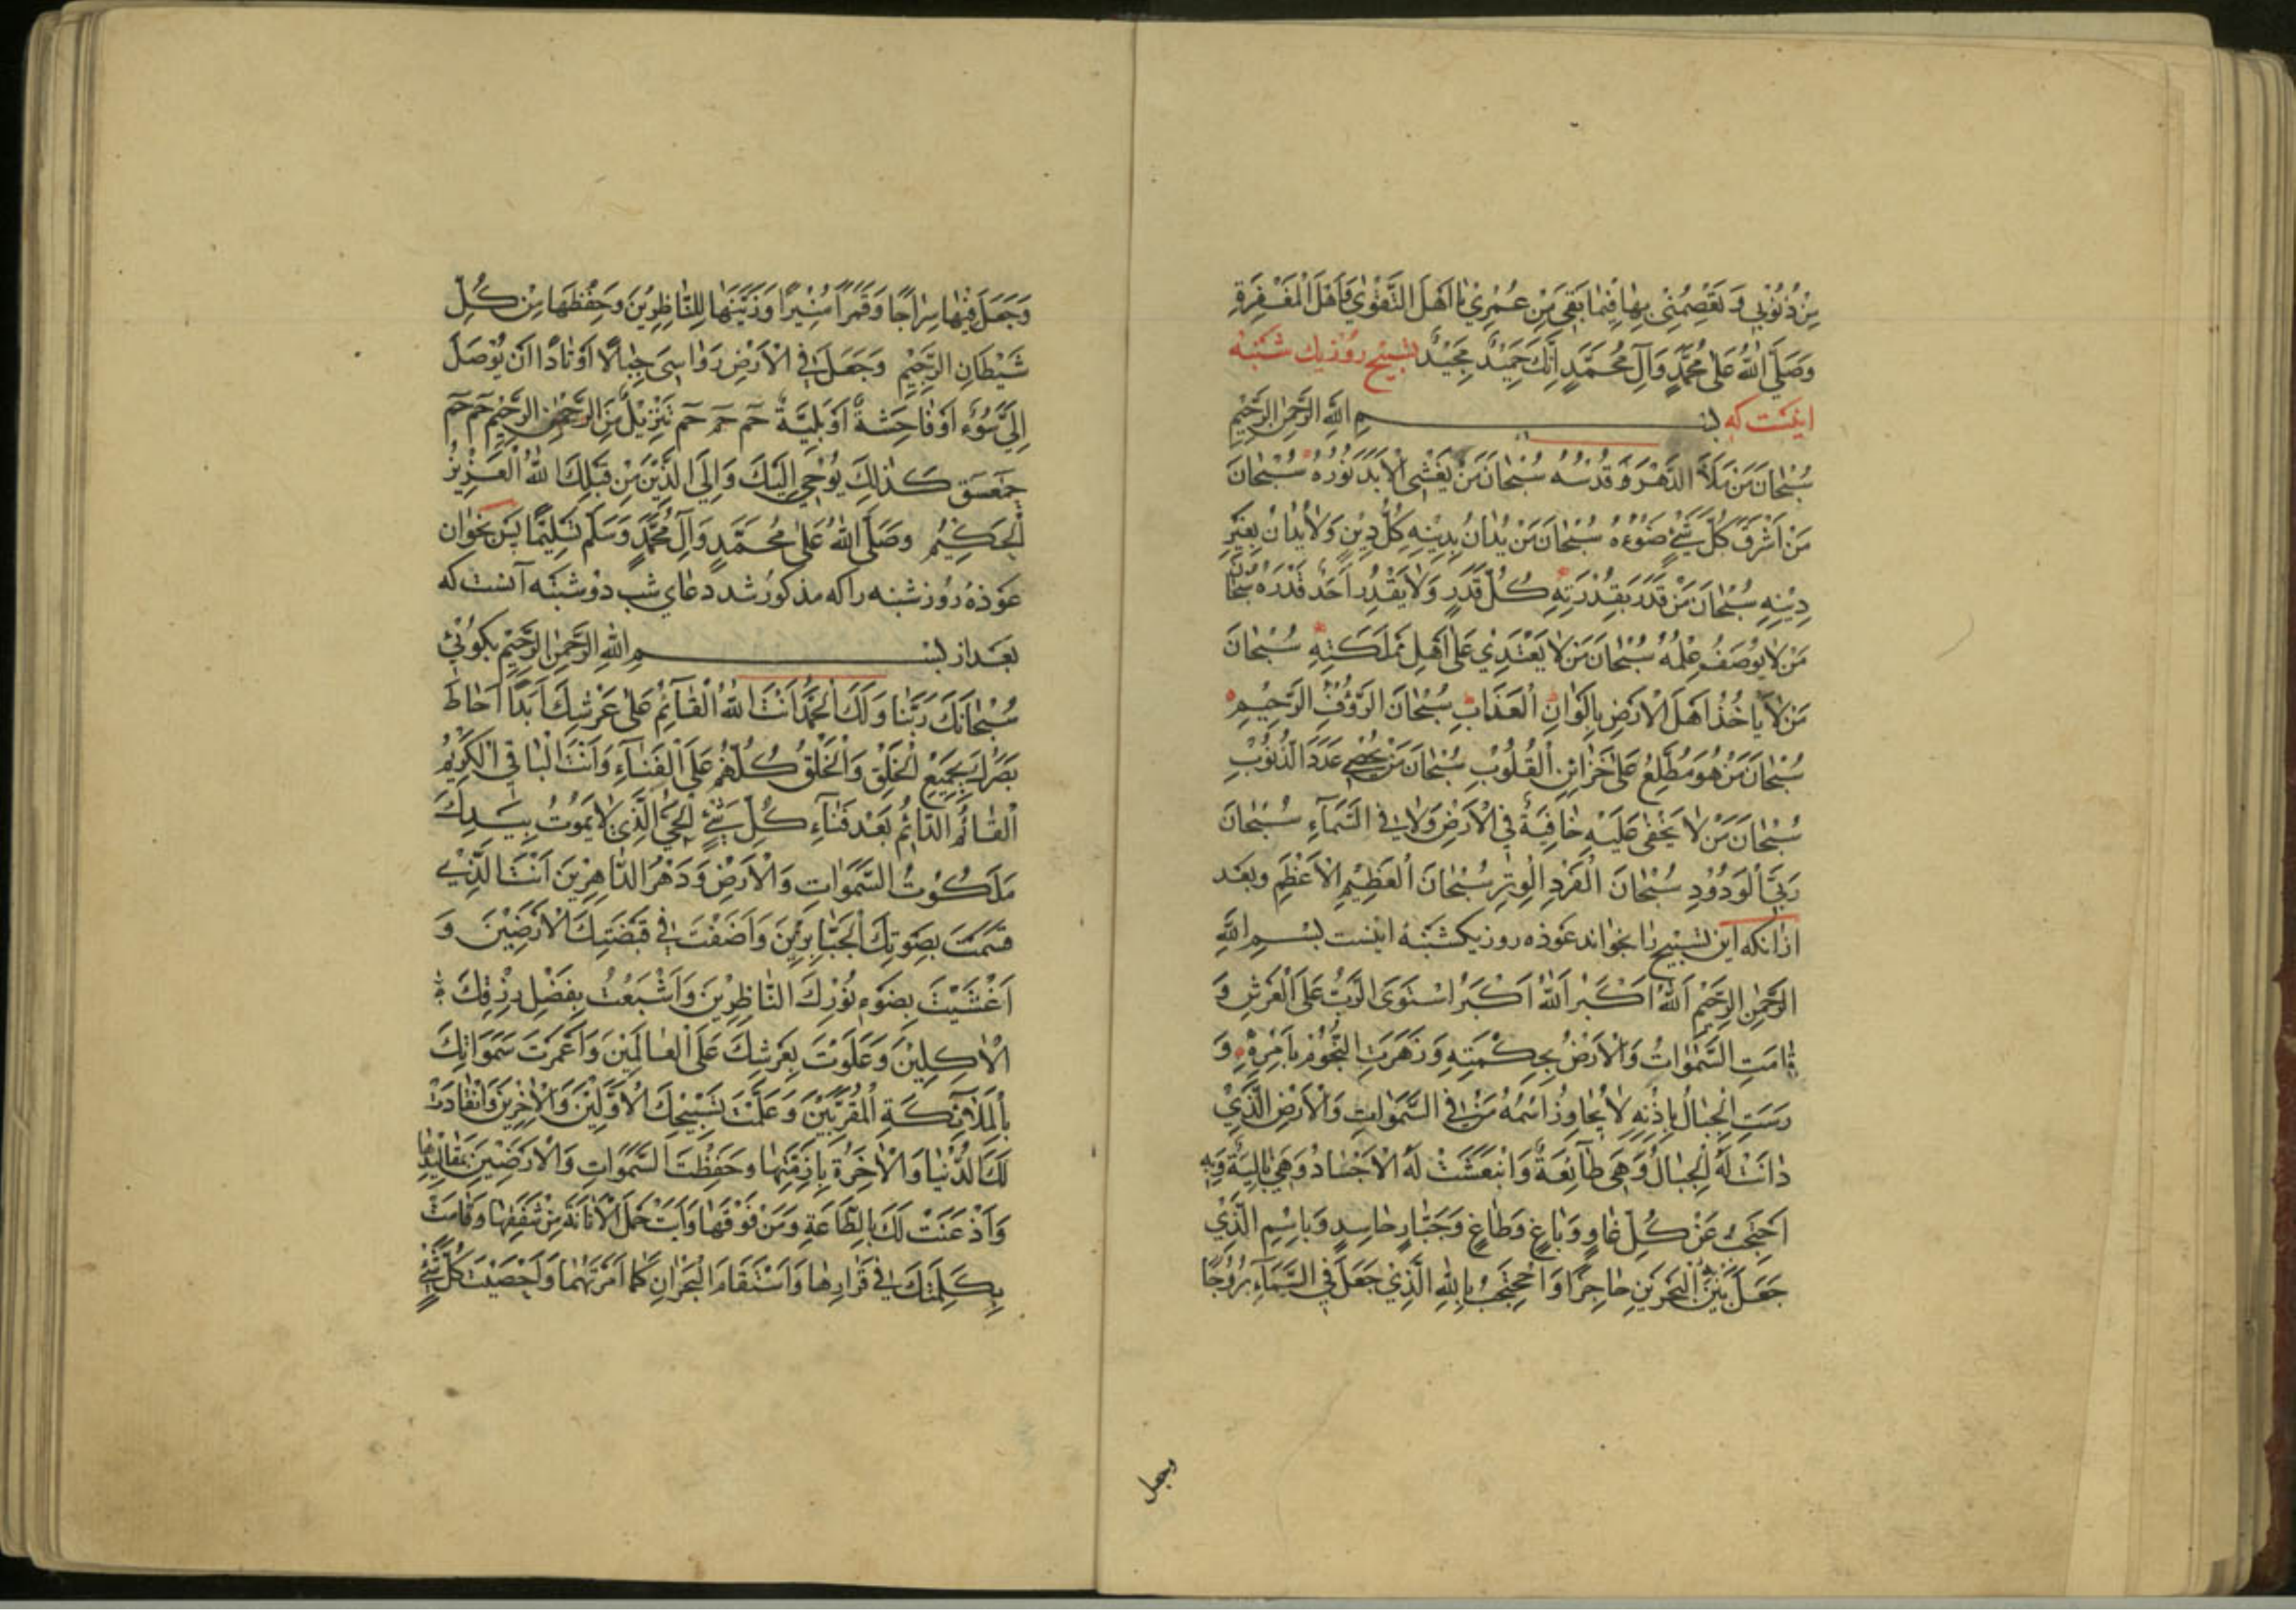 مِنْ ذُنُوْبِي وَ تَعْصِمُنِيْ بِهَا فِيْمَا بَقِيَ مِنْ عُمْرِيْ يَا اَهْلَ التَّقْوٰي وَ اَهْلَ الْمَغْفِرَةِ
وَصَلَّي اللّٰهُ عَلٰي مُحَمَّدٍ وَآلِ مُحَمَّدٍ اِنَّكَ حَمِيْدٌ مَجِيْدٌ تسبيح روز يك شنبه
اينست كه بِسْمِ اللّٰهِ الرَّحْمٰنِ الرَّحِيْمِ
سُبْحَانَ مَنْ مَلَأَ الدَّهْرَ وَ قُدْسُهُ سُبْحَانَ مَنْ يَغْشَي الْاَبَدَ نُوْرُهُ سُبْحَانَ
مَنْ اَشْرَقَ كُلَّ شَيْءٍ ضَوْءُهُ سُبْحَانَ مَنْ يُدَانُ بِدِيْنِهِ كُلُّ دِيْنٍ وَلَا يُدَانُ بِغَيْرِ
دِيْنِهِ سُبْحَانَ مَنْ قَدَرَ بِقُدْرَتِهِ كُلَّ قَدَرٍ وَلَا يَقْدِرُ اَحَدٌ قَدْرَهُ سُبْحَانَ
مَنْ لَا يُوْصَفُ عِلْمُهُ سُبْحَانَ مَنْ لَا يَعْتَدِيْ عَلٰي اَهْلِ مَمْلَكَتِهِ سُبْحَانَ
مَنْ لَا يَاْخُذُ اَهْلَ الْاَرْضِ بِاَلْوَانِ الْعَذَابِ سُبْحَانَ الرَّؤُفِ الرَّحِيْمِ
سُبْحَانَ مَنْ هُوَ مُطَّلِعٌ عَلٰي خَزَائِنِ الْقُلُوْبِ سُبْحَانَ مَنْ يُحْصِيْ عَدَدَ الذُّنُوْبِ
سُبْحَانَ مَنْ لَا يَخْفٰي عَلَيْهِ خَافِيَةٌ فِي الْاَرْضِ وَلَا فِي السَّمَآءِ سُبْحَانَ
رَبِّيَ الْوَدُوْدِ سُبْحَانَ الْفَرْدِ الْوِتْرِ سُبْحَانَ الْعَظِيْمِ الْاَعْظَمِ وبعد
ازانكه اين تسبيح را بخواند عوذه روز يكشنبه اينست بِسْمِ اللّٰهِ
الرَّحْمٰنِ الرَّحِيْمِ اَللّٰهُ اَكْبَرُ اَللّٰهُ اَكْبَرُ اسْتَوَي الرَّبُّ عَلَي الْعَرْشِ وَ
قَامَتِ السَّمٰوَاتُ وَالْاَرْضُ بِحِكْمَتِهِ وَ زَهَرَتِ النُّجُوْمُ بِاَمْرِهِ وَ
رَسَتِ الْجِبَالُ بِاِذْنِهِ لَا يُجَاوِزُ اسْمُهُ مَنْ فِي السَّمٰوَاتِ وَالْاَرْضِ الَّذِيْ
دَانَتْ لَهُ الْجِبَالُ وَهِيَ طَآئِعَةٌ وَانْبَعَثَتْ لَهُ الْاَجْسَادُ وَهِيَ بَالِيَةٌ وَبِهِ
اَحْتَجِبُ عَنْ كُلِّ غَاوٍ وَبَاغٍ وَطَاغٍ وَجَبَّارٍ حَاسِدٍ وَبِاسْمِ الَّذِيْ
جَعَلَ بَيْنَ الْبَحْرَيْنِ حَاجِزًا وَاَحْتَجِبُ بِاللّٰهِ الَّذِيْ جَعَلَ فِي السَّمَآءِ بُرُوْجًا
وجعل
وَجَعَلَ فِيْهَا سِرَاجًا وَقَمَرًا مُنِيْرًا وَزَيَّنَهَا لِلنَّاظِرِيْنَ وَحَفِظَهَا مِنْ كُلِّ
شَيْطَانٍ الرَّجِيْمِ وَجَعَلَ فِي الْاَرْضِ رَوَاسِيَ جِبَالًا اَوْتَادًا اَنْ يُوْصَلَ
اِلَيَّ سُوْءٌ اَوْ فَاحِشَةٌ اَوْ بَلِيَّةٌ حٓمٓ حٓمٓ حٓمٓ تَنْزِيْلٌ مِنَ الرَّحْمٰنِ الرَّحِيْمِ حٓمٓ حٓمٓ
حٓمٓعٓسٓقٓ كَذٰلِكَ يُوْحِيْ اِلَيْكَ وَاِلَي الَّذِيْنَ مِنْ قَبْلِكَ اللّٰهُ الْعَزِيْزُ
الْحَكِيْمُ وَصَلَّي اللّٰهُ عَلٰي مُحَمَّدٍ وَآلِ مُحَمَّدٍ وَسَلَّمَ تَسْلِيْمًا پس بخوان
عوذه روز شنبه را كه مذكور شد دعاي شب دوشنبه آنست كه
بعد از بِسْمِ اللّٰهِ الرَّحْمٰنِ الرَّحِيْمِ بكوئي
سُبْحَانَكَ رَبَّنَا وَلَكَ الْحَمْدُ اَنْتَ اللّٰهُ الْقَآئِمُ عَلٰي عَرْشِكَ اَبَدًا اَحَاطَ
بَصَرُكَ بِجَمِيْعِ الْخَلْقِ وَالْخَلْقُ كُلُّهُمْ عَلَي الْفَنَآءِ وَاَنْتَ الْبَاقِي الْكَرِيْمُ
الْقَآئِمُ الدَّآئِمُ بَعْدَ فَنَآءِ كُلِّ شَيْءٍ الْحَيُّ الَّذِيْ لَا يَمُوْتُ بِيَدِكَ
مَلَكُوْتُ السَّمٰوَاتِ وَالْاَرْضِ وَدَهْرُ الدَّاهِرِيْنَ اَنْتَ الَّذِيْ
قَسَمْتَ بِصَوْتِكَ الْجَبَّابِرِيْنَ وَاَضَفْتَ فِيْ قَبْضَتِكَ الْاَرَضِيْنَ وَ
اَغْشَيْتَ بِضَوْءِ نُوْرِكَ النَّاظِرِيْنَ وَاَشْبَعْتَ بِفَضْلِ رِزْقِكَ
الْاٰكِلِيْنَ وَعَلَوْتَ بِعَرْشِكَ عَلَي الْعَالَمِيْنَ وَاَعْمَرْتَ سَمٰوَاتِكَ
بِالْمَلَآئِكَةِ الْمُقَرَّبِيْنَ وَعَلَّمْتَ تَسْبِيْحَكَ الْاَوَّلِيْنَ وَالْاٰخِرِيْنَ وَانْقَادَتْ
لَكَ الدُّنْيَا وَالْاٰخِرَةُ بِاَزِمَّتِهَا وَحَفِظْتَ السَّمٰوَاتِ وَالْاَرَضِيْنَ بِمَقَالِيْدِهَا
وَاَذْعَنَتْ لَكَ بِالطَّاعَةِ وَمَنْ فَوْقَهَا وَاَبَتْ حَمْلَ الْاَمَانَةِ مِنْ شَفَقِهَا وَقَامَتْ
بِكَلِمَتِكَ فِيْ قَرَارِهَا وَاسْتَقَامَ الْبَحْرَانِ كَمَا اَمَرْتَهُمَا وَاَحْصَيْتَ كُلَّ شَيْءٍ